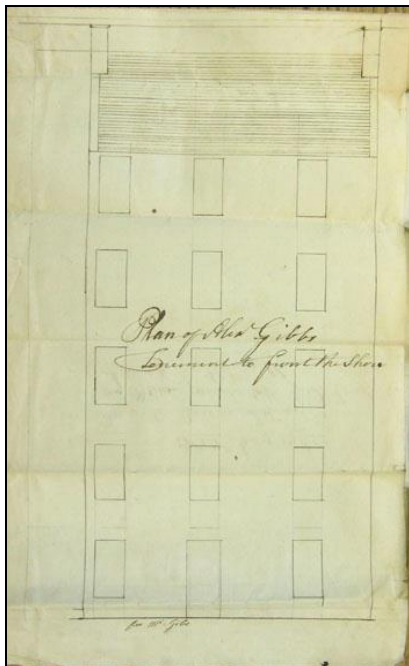 Plan of Alexr Gibbs
Tenement to front the Shore
for Mr Gibb